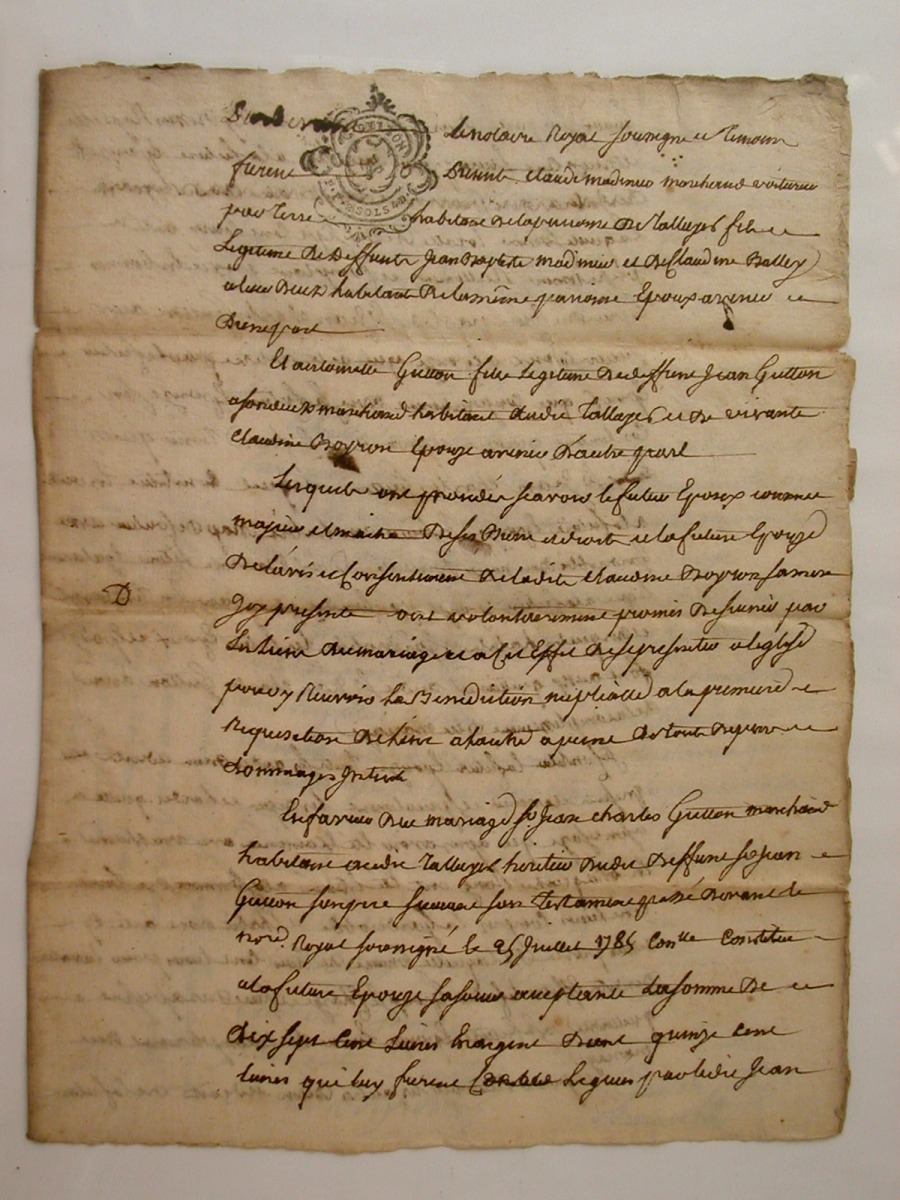 Pardevant Le notaire Royal soussigné et temoins
furent Présents claude madinier marchand voiturier
par terre habitant de la paroisse De talluyes fils
Legitime De Deffunts Jean Baptiste madinier et De Claudine Balley
a leur vivant habitants De la même paroisse Epoux avenir
D'une part
Et antoinette Guitton fille Legitime De deffunt Jean Guitton
a son vivant marchand habitant dudit Talluyes et De vivante
Claudine Boyron Epouze avenir D'autre part
Lesquels ont procédés scavoir le futur Epoux comme
majeur et maitre De ses Biens et droits et la future Epouze
De l'avis et Consentement De ladite claudine Boyron sa mere
D
Jcy presente ont volontairement promis De s'unir par
Le Lien Du mariage et a Cet Effet De se presenter a l'eglise
pour y Recevoir La Benediction nuptialle a la premiere
Requisition De l'un a l'autre a peine De tous Depens
Dommages Interets
En faveur Duc mariage Sr Jean charles Guitton marchand
habitant dudit Talluyes heritier Dudit Deffunt Sr Jean
Guitton son pere suivant son Testament passé Devant le
nore. Royal soussigné le 25 Juillet 1785 Conllé Constitue
a la future Epouze sa soeur acceptante La somme De
Dix sept Cent Livres En argent Dont quinze cent
livres qui luy furent Legués par ledit Jean